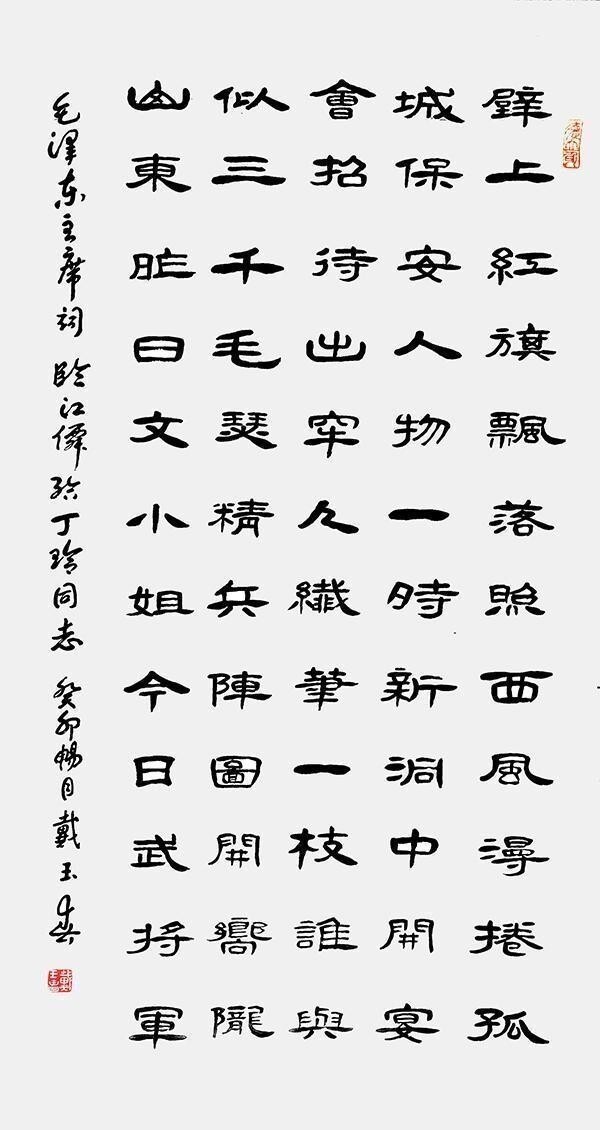 壁上紅旗飄落照西風漫捲孤
城保安人物一時新洞中開宴
會招待出牢久纖筆一枝誰與
似三千毛瑟精兵陣圖開嚮隴
山東昨日文小姐今日武將軍
毛澤东主席詞 臨江僊 給丁玲同志 癸卯暢月戴玉春